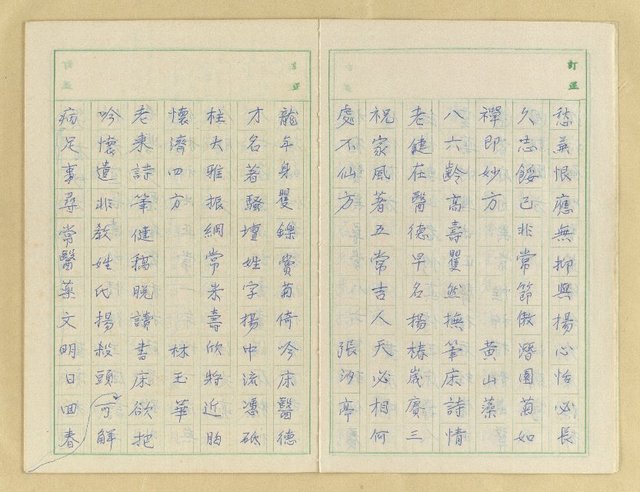 訂正
愁無恨應無抑與揚心怡必長
久志餒已非常節傲潛園菊如
禪即妙方　黃山藥
八六齡高壽瞿然撫筆床詩情
老健在醫德早名揚椿歲賡三
祝家風著五常吉人天必相何
處不仙方　張沙亭
訂正
龍年身矍鑠賞菊倚吟床醫德
才名著騷壇姓字揚中流憑砥
柱大雅振綱常米壽欣將近胞
懷濟四方　林玉華
老來詩筆健稿晚讀書床欲把
吟懷遣非教姓氏揚殺頭可解
病足事尋常醫藥文明日回春